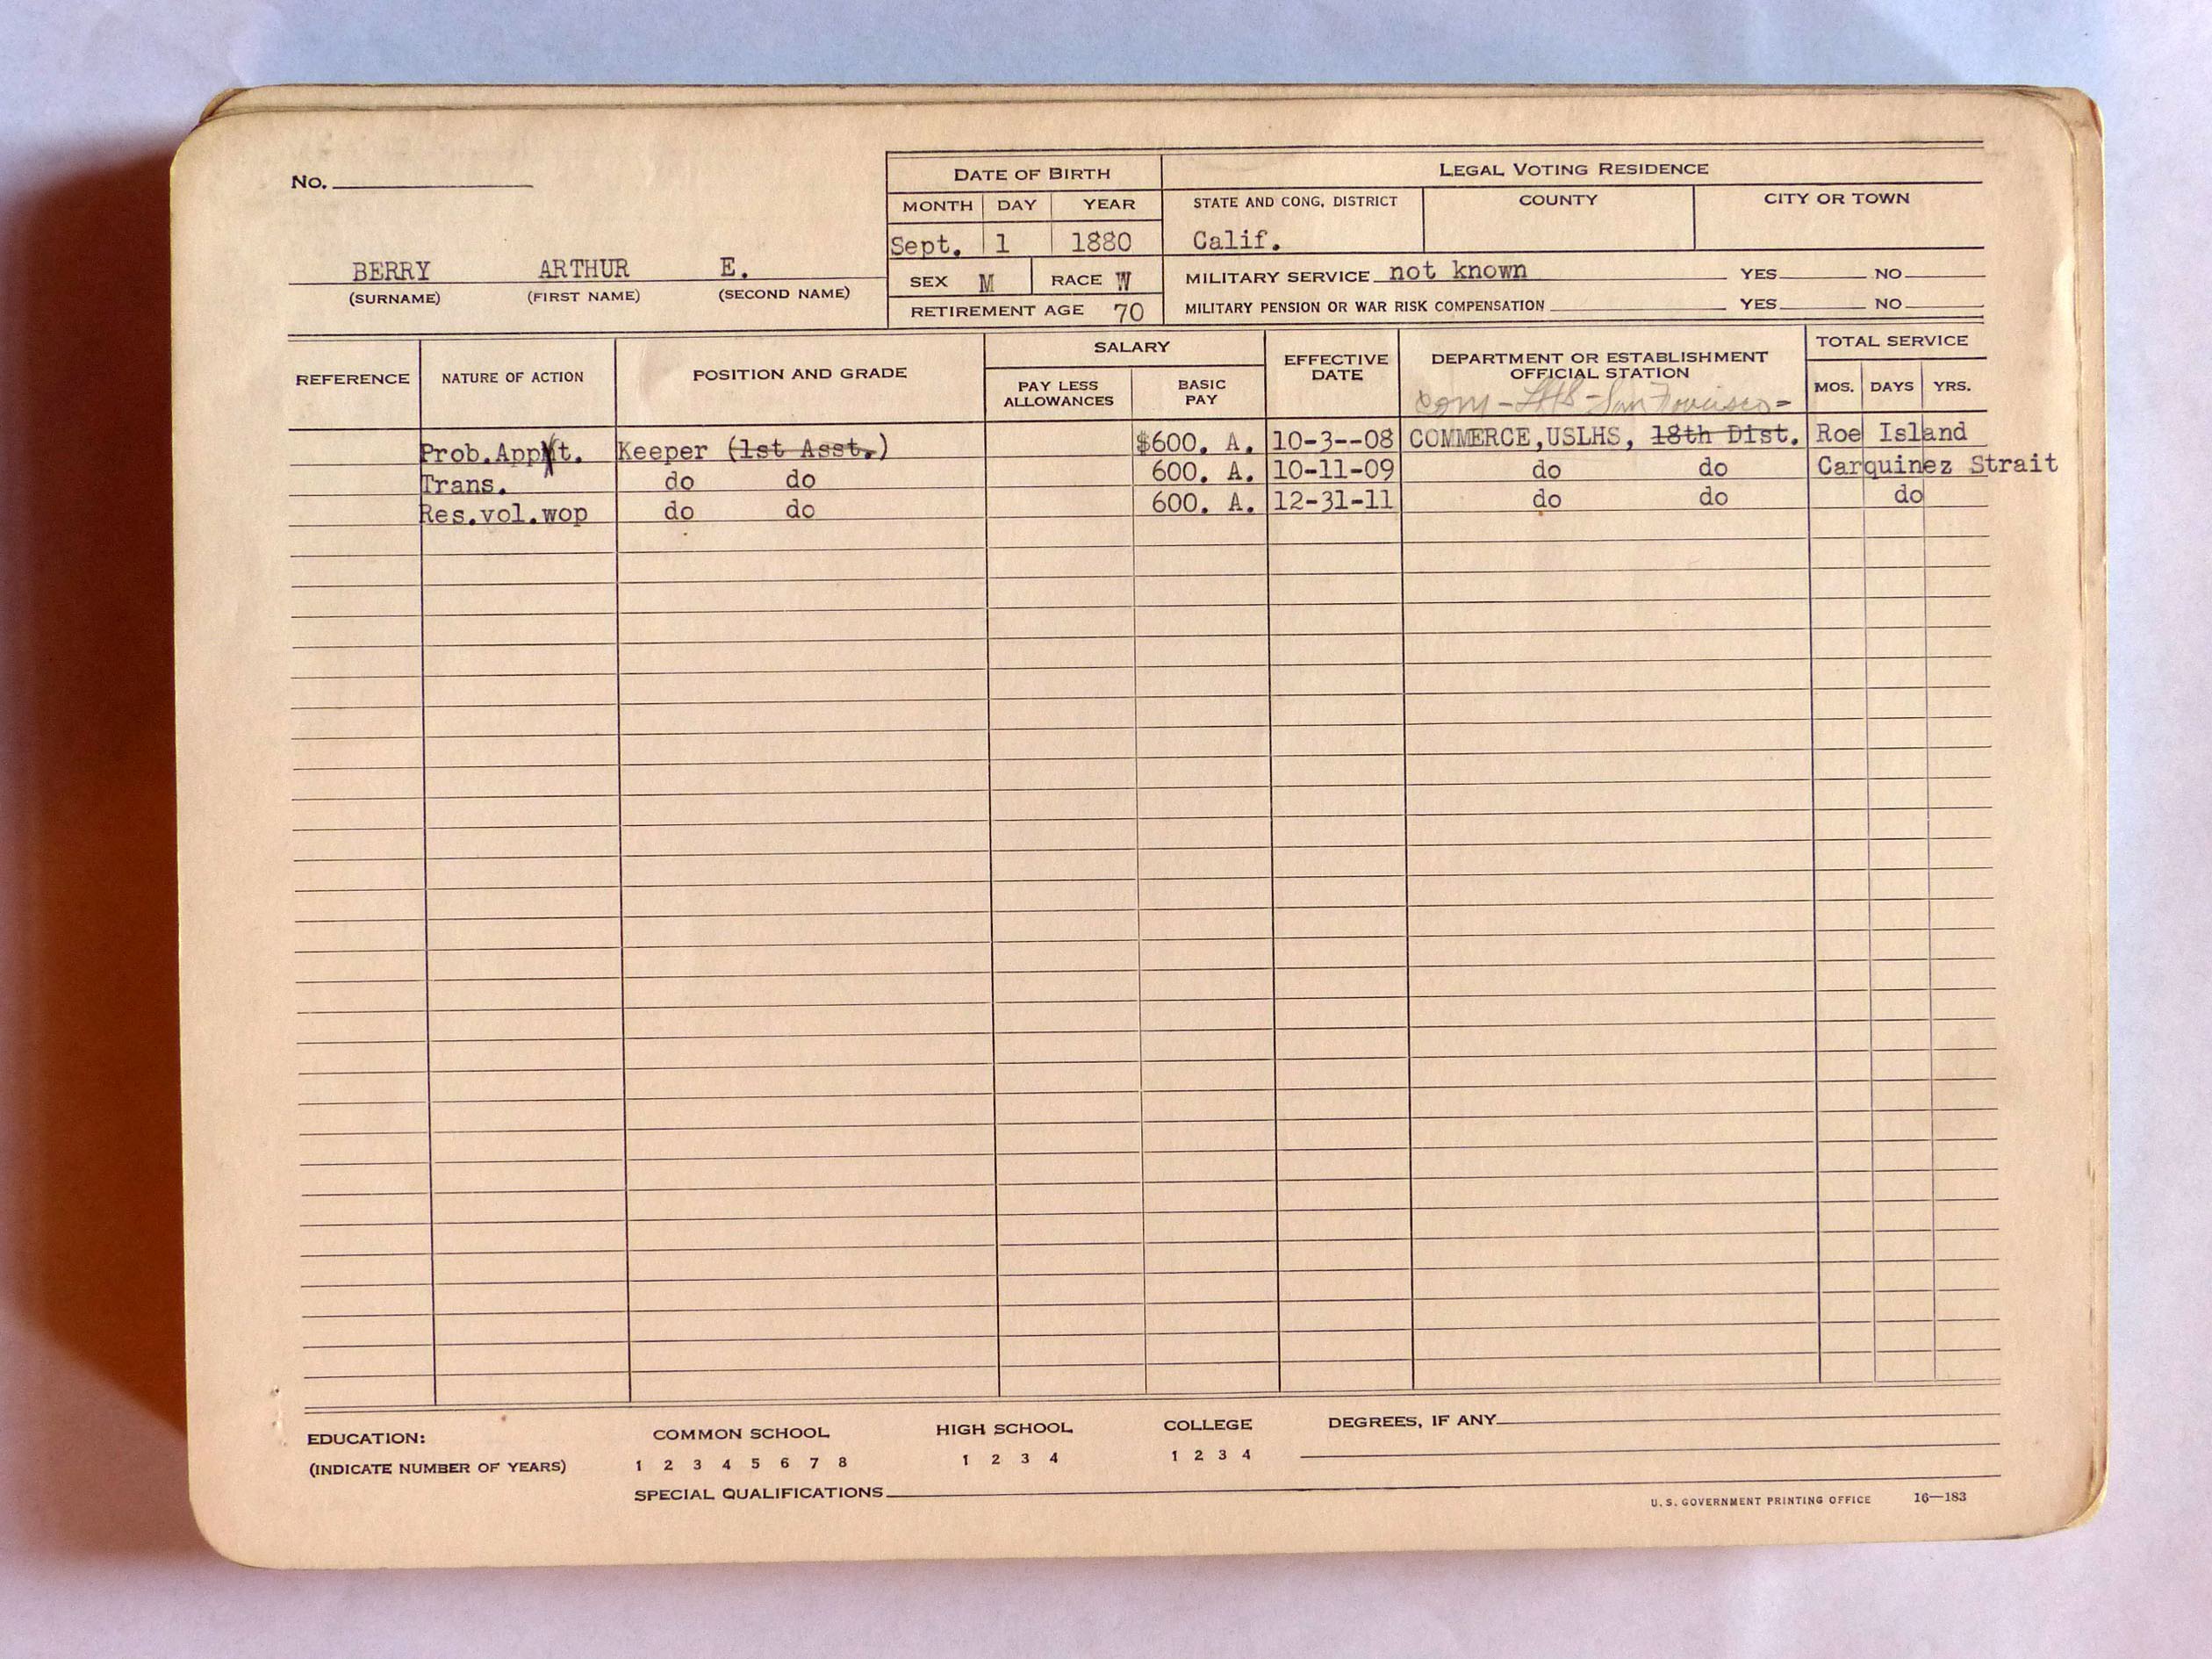 No.
DATE OF BIRTH
LEGAL VOTING RESIDENCE
MONTH DAY YEAR
STATE AND CONG. DISTRICT COUNTY CITY OR TOWN
Sept. 1 1880
Calif.
BERRY ARTHUR E.
(SURNAME) (FIRST NAME) (SECOND NAME)
SEX M RACE W
MILITARY SERVICE not known YES NO
RETIREMENT AGE 70
MILITARY PENSION OR WAR RISK COMPENSATION YES NO
REFERENCE NATURE OF ACTION POSITION AND GRADE
SALARY
PAY LESS ALLOWANCES BASIC PAY
EFFECTIVE DATE
DEPARTMENT OR ESTABLISHMENT
OFFICIAL STATION
Com - LHS - San Francisco -
TOTAL SERVICE
MOS. DAYS YRS.
Prob.Appt. Keeper (1st Asst.) $600. A. 10-3--08 COMMERCE,USLHS, 18th Dist. Roe Island
Trans. do do 600. A. 10-11-09 do do Carquinez Strait
Res.vol.wop do do 600. A. 12-31-11 do do do
EDUCATION: COMMON SCHOOL HIGH SCHOOL COLLEGE DEGREES, IF ANY
(INDICATE NUMBER OF YEARS) 1 2 3 4 5 6 7 8 1 2 3 4 1 2 3 4
SPECIAL QUALIFICATIONS
U. S. GOVERNMENT PRINTING OFFICE 16—183